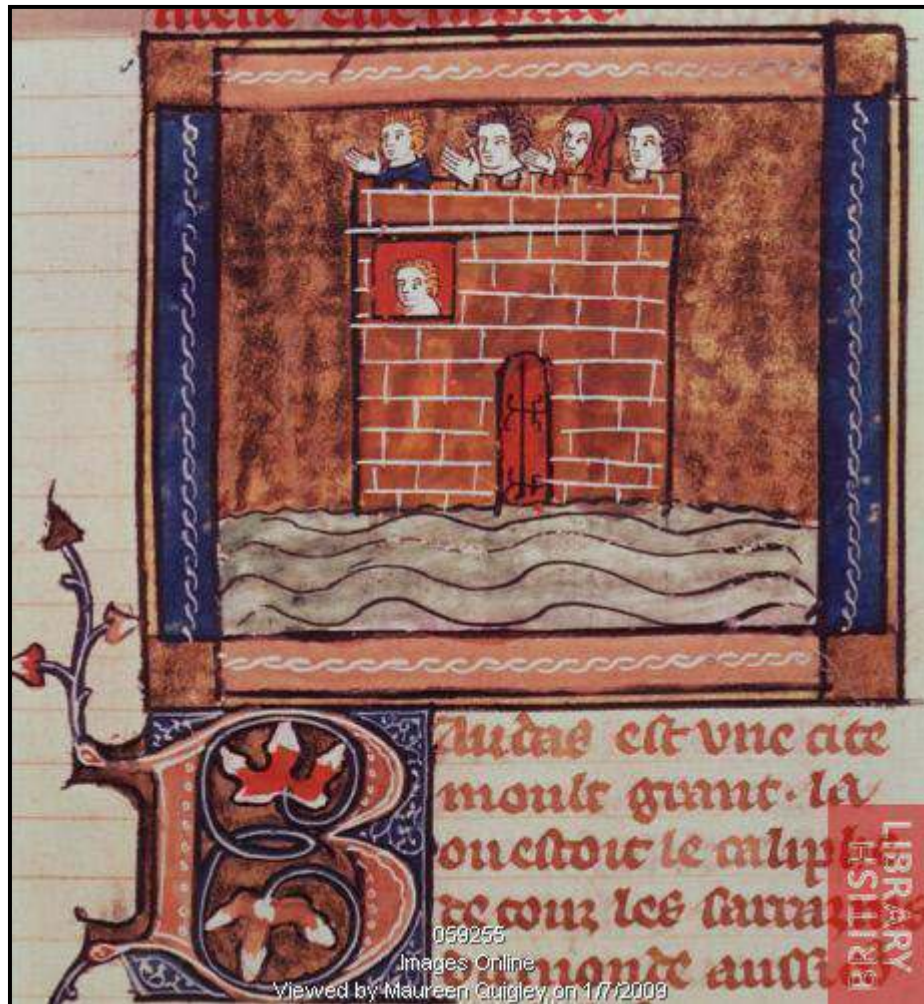 Baudas est vne cite
moult grant · la
ou estoit le caliphe
de touz les sarra
monde aussi
BRITISH
LIBRARY
059255
Images Online
Viewed by Maureen Quigley on 1/7/2009